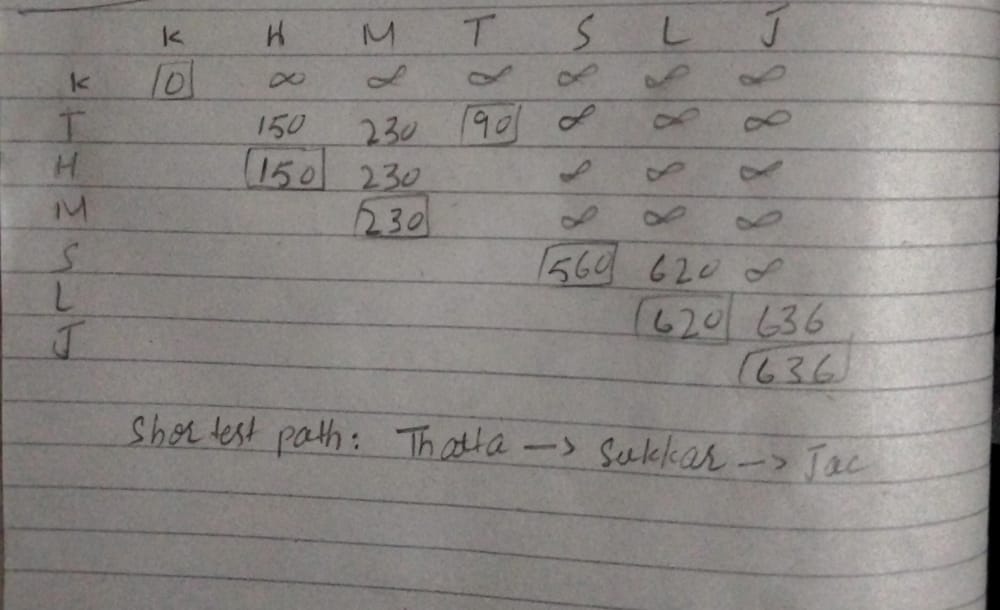 K H M T S L J
K 0 ∞ ∞ ∞ ∞ ∞ ∞
T 150 230 90 ∞ ∞ ∞
H 150 230 ∞ ∞ ∞
M 230 ∞ ∞ ∞
S 560 620 ∞
L 620 636
J 636
Shortest path: Thatta --> Sukkar --> Jac